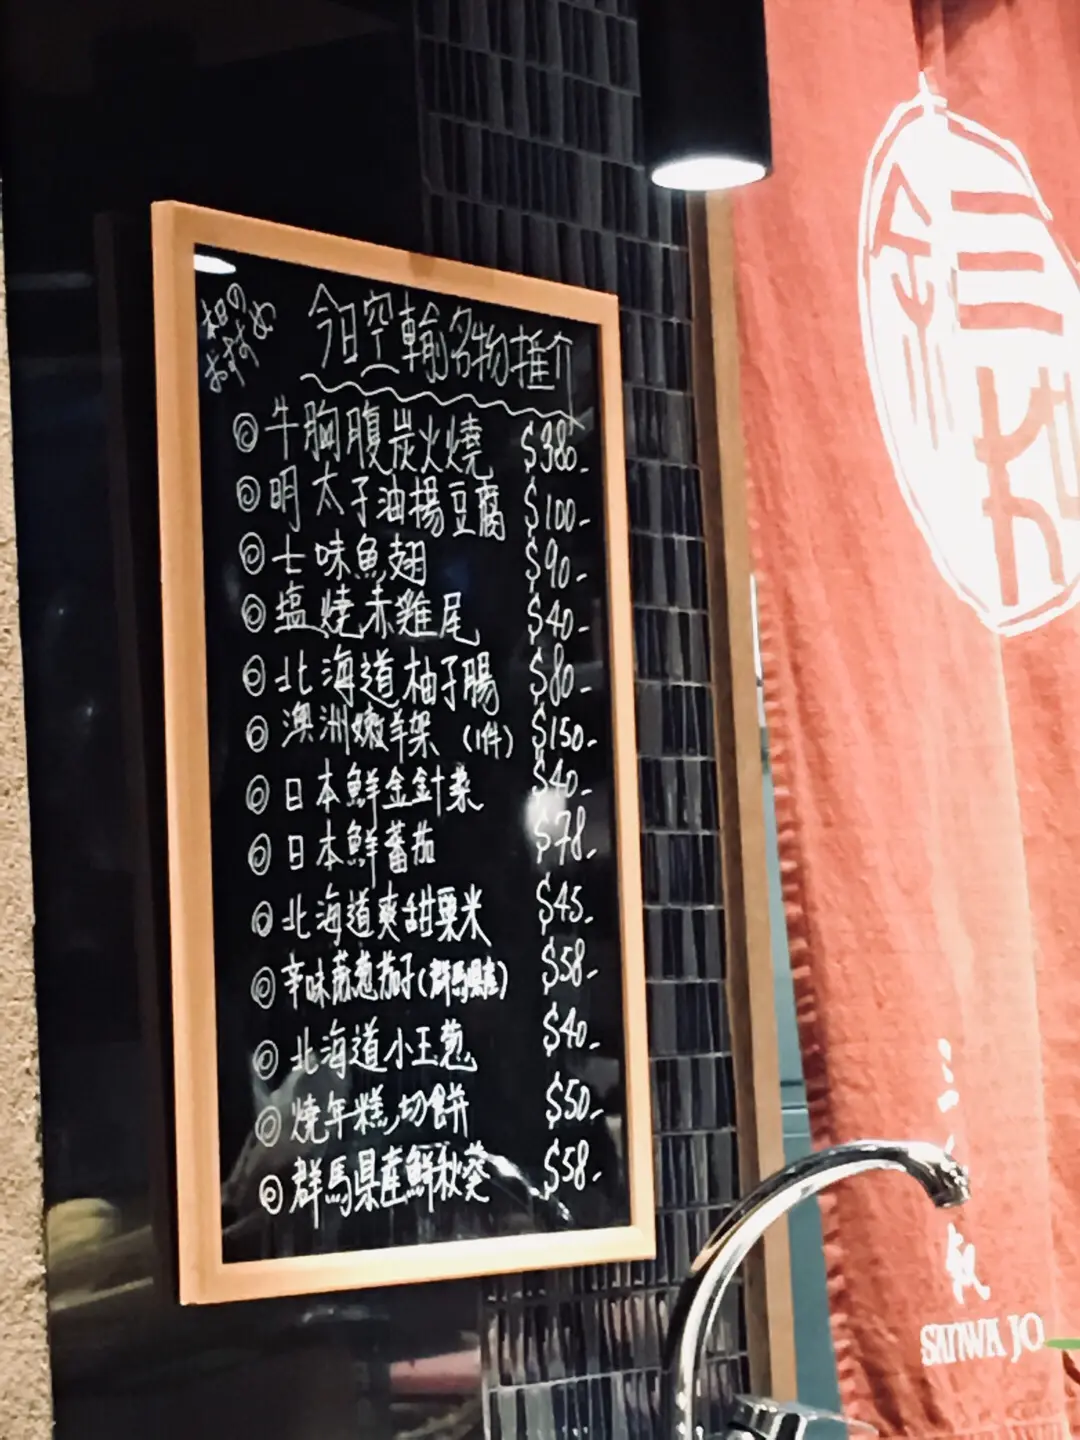 本日の
おすすめ
今日空輸名物推介
◎牛胸腹炭火燒 $380-
◎明太子油揚豆腐 $100-
◎七味魚翅 $90-
◎塩燒赤雞尾 $40-
◎北海道柚子腸 $80-
◎澳洲嫩羊架（1件） $150-
◎日本鮮金針菜 $40-
◎日本鮮蕃茄 $78-
◎北海道爽甜粟米 $45-
◎辛味蔴葱茄子（群馬県産） $58-
◎北海道小玉葱 $40-
◎燒年糕切餅 $50-
◎群馬県産鮮秋葵 $58-
三
SANWA JO